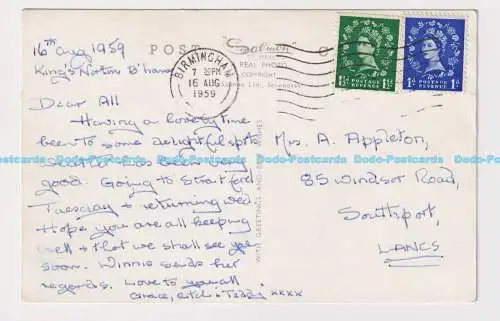 16TH Aug 1959
King's Norton B'ham
Dear All
Having a lovely time
been to some delightful spots
weather has been very
good. Going to Stratford
Tuesday & returning Wed.
Hope you are all keeping
well & that we shall see you
soon. Winnie sends her
regards. Love to you all
Grace, & Teddy xxxx
POST
"Salmon"
REAL PHOTO
COPYRIGHT
BIRMINGHAM
7 PM
16 AUG
1959
1½D POSTAGE REVENUE 1½D
1D POSTAGE REVENUE 1D
WITH GREETINGS AND
Mrs. A. Appleton,
85 Windsor Road,
Southport,
LANCS
Dodo-Postcards Dodo-Postcards Dodo-Postcards Dodo-Postcards